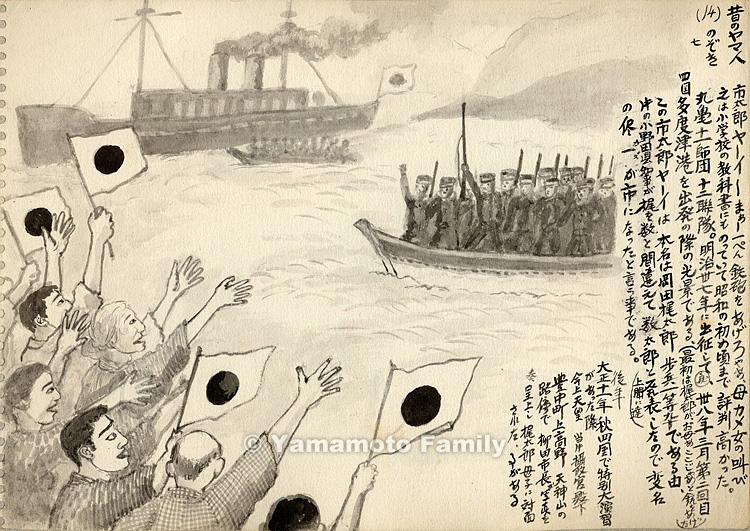 昔のヤマ人
(14) のぞき
七
市太郎ヤーイ まあ一ぺん鉄砲をあげろヲ 母カメ女の叫び
之は小学校の教科書にものっていて昭和の初め頃まで評判高かった。
丸亀十一師団十二聯隊。明治卅七年に出征して 卅八年三月第二回目
四国多度津港を出発の際の光景である。
(最初は梶太郎がお母
上陸に達
この市太郎ヤーイは 本名は岡田梶太郎 歩兵一等卒である由
市の小野田
が梶を数と間違えて 数太郎と発表したので 変名
の保一 が市になったと言う事である。
後年
大正十一年秋四国で特別大演習
があった際
今上天皇 当時摂政宮殿下
豊中町上高野 天神山の
路傍で 柳田市長
梶太郎母子に対面
© Yamamoto Family